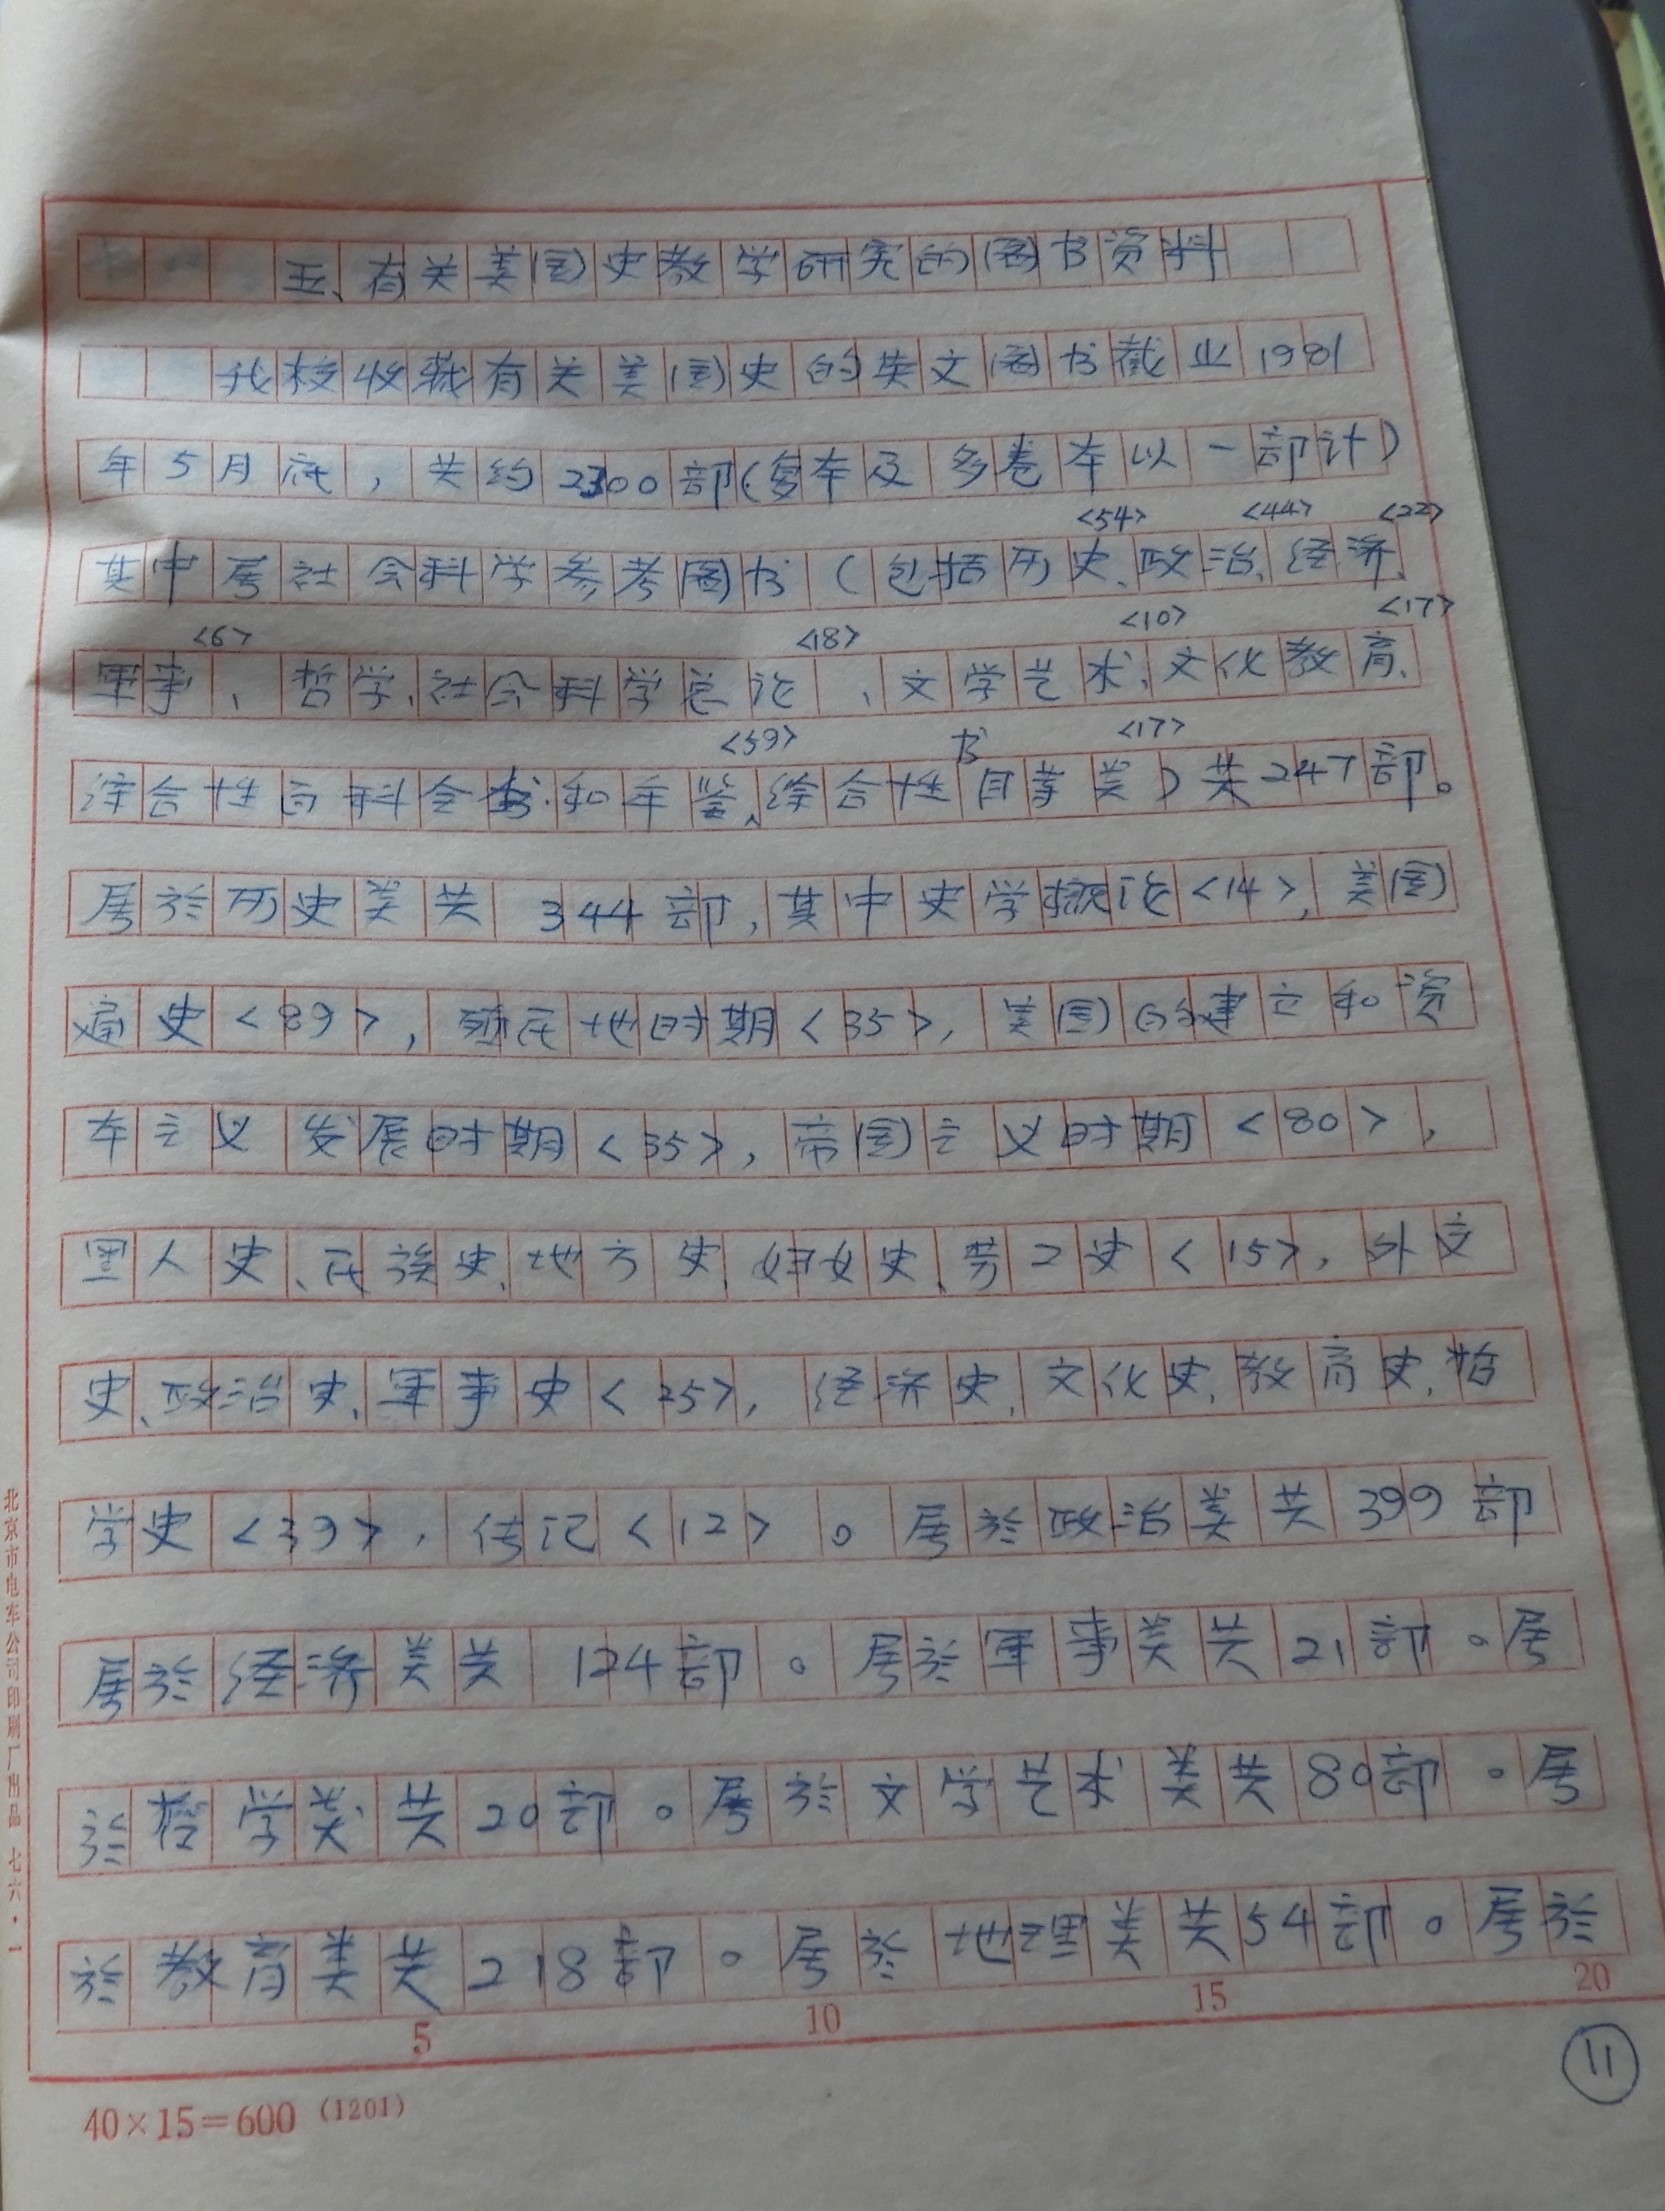 五、有关美国史教学研究的图书资料
我校收藏有关美国史的英文图书截止1981
年5月底，共约2300部(复本及多卷本以一部计)
<54> <44> <22>
其中属社会科学参考图书（包括历史、政治、经济、
<6> <18> <10> <17>
军事、哲学、社会科学总论、文学艺术、文化教育、
<59> 书 <17>
综合性百科全书和年鉴、综合性目等类）共247部。
属於历史类共344部，其中史学概论<14>，美国
通史<89>，殖民地时期<35>，美国的建立和资
本主义发展时期<35>，帝国主义时期<80>，
黑人史、民族史、地方史、妇女史、劳工史<15>，外交
史、政治史、军事史<25>，经济史、文化史、教育史、哲
学史<39>，传记<12>。属於政治类共399部
属於经济类共124部。属於军事类共21部。属
於哲学类共20部。属於文学艺术类共80部。属
於教育类共218部。属於地理类共54部。属於
5 10 15 20
11
40×15=600 (1201)
北京市电车公司印刷厂出品 七六·一